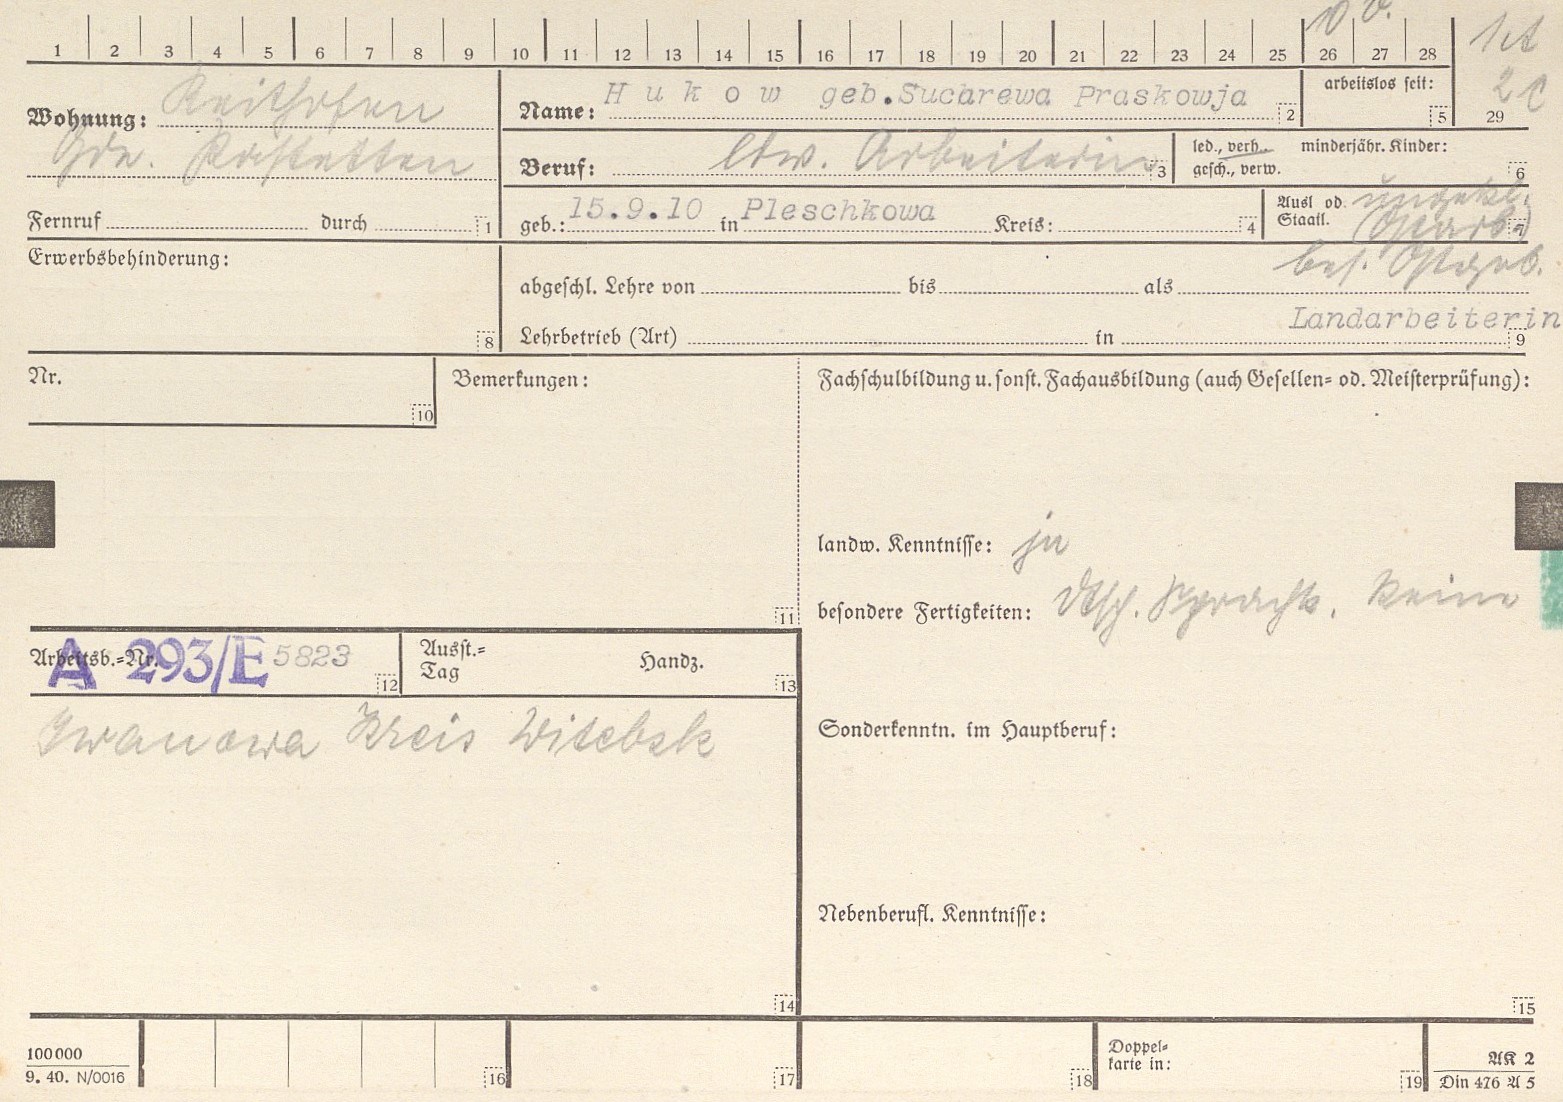 1 2 3 4 5 6 7 8 9 10 11 12 13 14 15 16 17 18 19 20 21 22 23 24 25 26 27 28 29
Wohnung: Reithofen
Gde. Pastetten
Fernruf durch 1
Name: Hukow geb.Sucarewa Praskowja 2
arbeitslos seit: 5
Beruf: ldw. Arbeiterin 3
led., verh. minderjähr. Kinder:
gesch., verw. 6
geb.: 15.9.10 in Pleschkowa Kreis: 4
Ausl od. ungekl.
Staatl. (Ostarb.) 7
bes. Ostgeb.
Erwerbsbehinderung:
8
abgeschl. Lehre von bis als
Landarbeiterin
Lehrbetrieb (Art) in 9
Nr.
10
Bemerkungen:
11
Fachschulbildung u. sonst. Fachausbildung (auch Gesellen= od. Meisterprüfung):
landw. Kenntnisse: ja
besondere Fertigkeiten: dtsch. Sprachk. keine
Arbeitsb.=Nr. A 293/E 5823 12
Ausst.= Handz.
Tag 13
Iwanowa Kreis Witebsk
14
Sonderkenntn. im Hauptberuf:
Nebenberufl. Kenntnisse:
15
100 000
9. 40. N/0016
16
17
18
Doppel=
karte in:
19
AK 2
Din 476 A 5